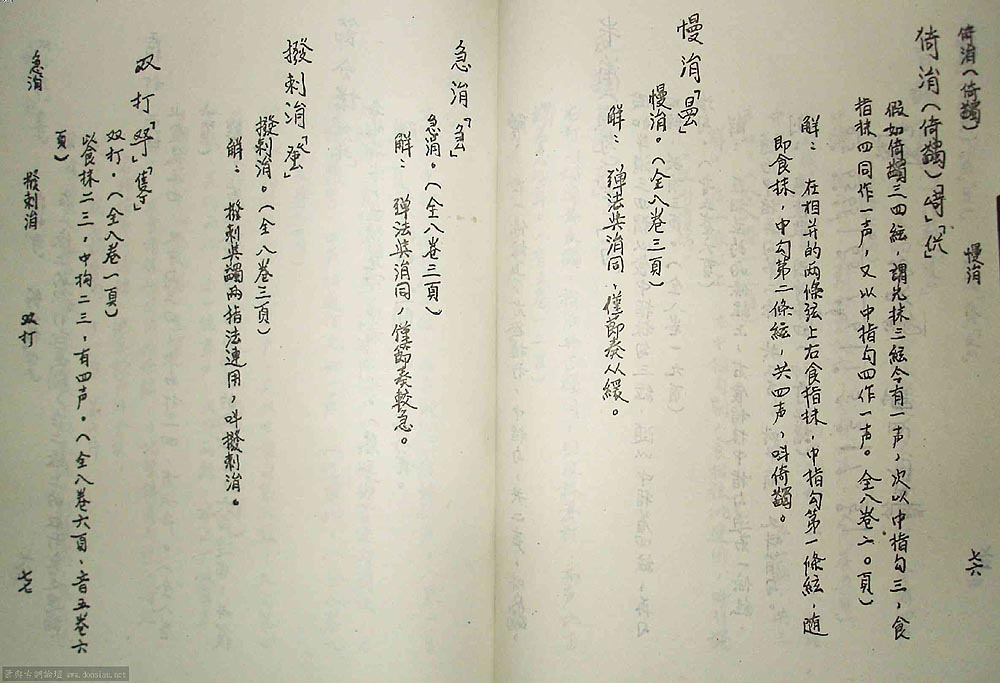 倚涓(倚蠲)
慢涓
七六
倚涓(倚蠲)「」「」
假如倚蠲三四絃,謂先抹三絃令有一声,次以中指勾三,食
指抹四同作一声,又以中指勾四作一声。全八卷二〇頁)
解: 在相并的两條弦上右食指抹,中指勾第一條絃,随
即食抹,中勾第二條絃,共四声,叫倚蠲。
慢涓「」
慢涓。(全八卷三頁)
解: 弹法与涓同,僅節奏从緩。
急涓「」
急涓。(全八卷三頁)
解: 弹法与涓同,僅節奏較急。
撥刺涓「」
撥刺涓。(全八卷三頁)
解: 撥刺與蠲两指法連用,叫撥刺涓。
双打「」「」
双打。(全八卷一頁)
以食抹二三,中拘二三,有四声。(全八卷六頁、音五卷六
頁)
急涓
撥刺涓
双打
七七
www.donsiau.net